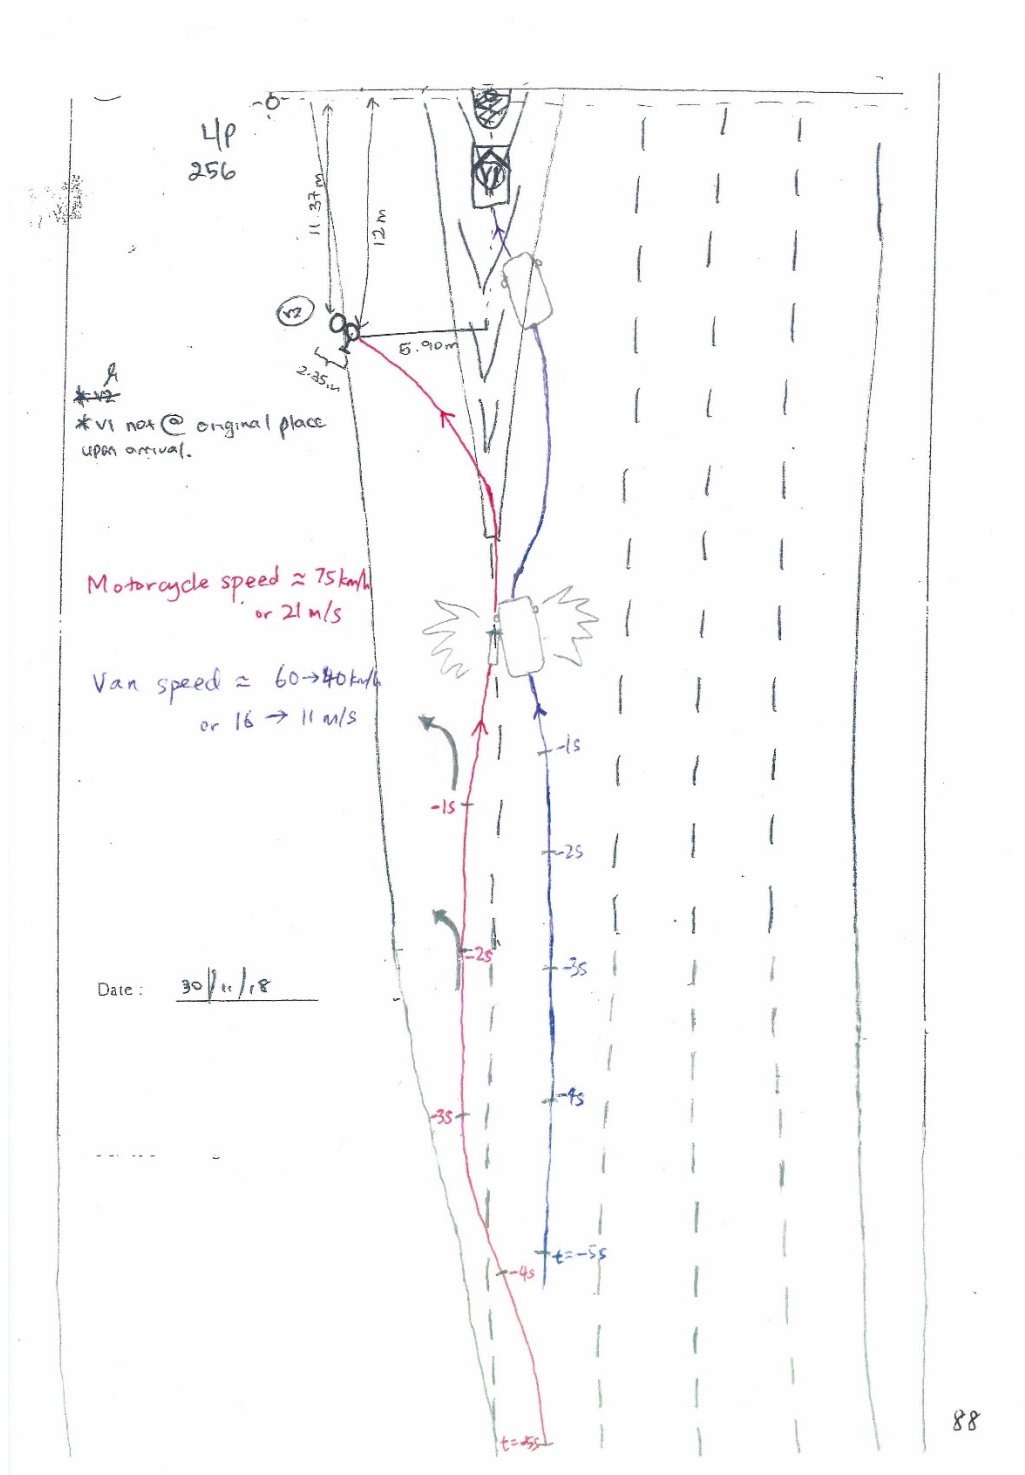 L/P
256
11.37m
12m
V1
V2
5.90m
2.35m
*V2
*V1 not @ original place
upon arrival.
Motorcycle speed ≈ 75km/h
or 21 m/s
Van speed ≈ 60→40km/h
or 16 → 11 m/s
-1s
-1s
-2s
-2s
-3s
Date: 30/11/18
-4s
-3s
t=-5s
-4s
t=-5s
88